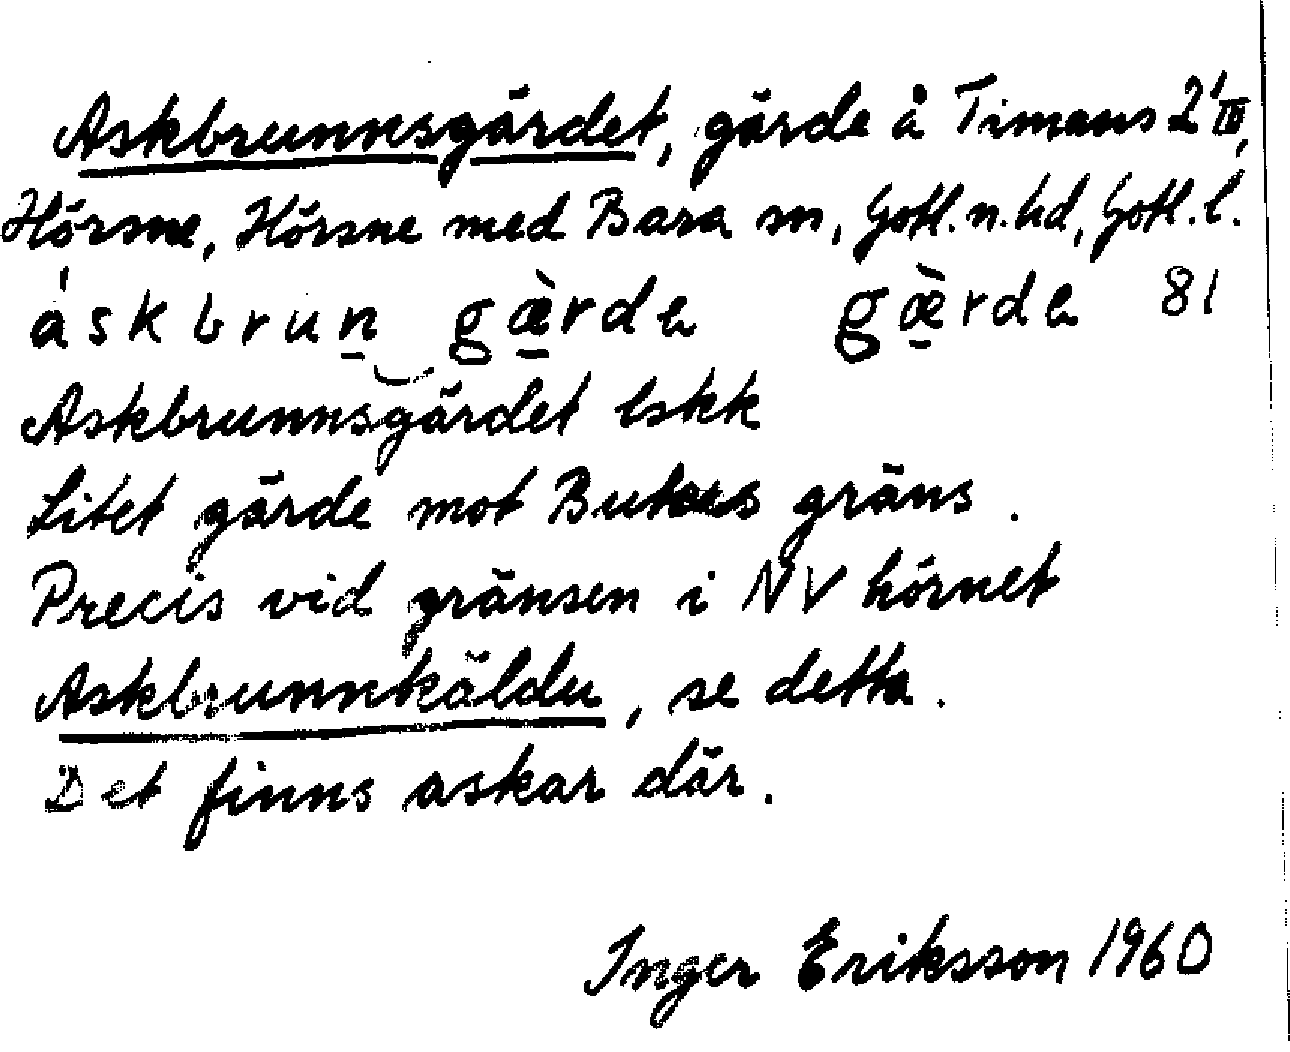 Askbrunnsgärdet, gärde å Timans 2 III,
Hörsne, Hörsne med Bara sn, Gotl. n. hd, Gotl. l.
áskbrun gærdɐ gærdɐ 81
Askbrunnsgärdet lskk
Litet gärde mot Buters gräns.
Precis vid gränsen i NV hörnet
Askbrunnkäldu, se detta.
Det finns askar där.
Inger Eriksson 1960